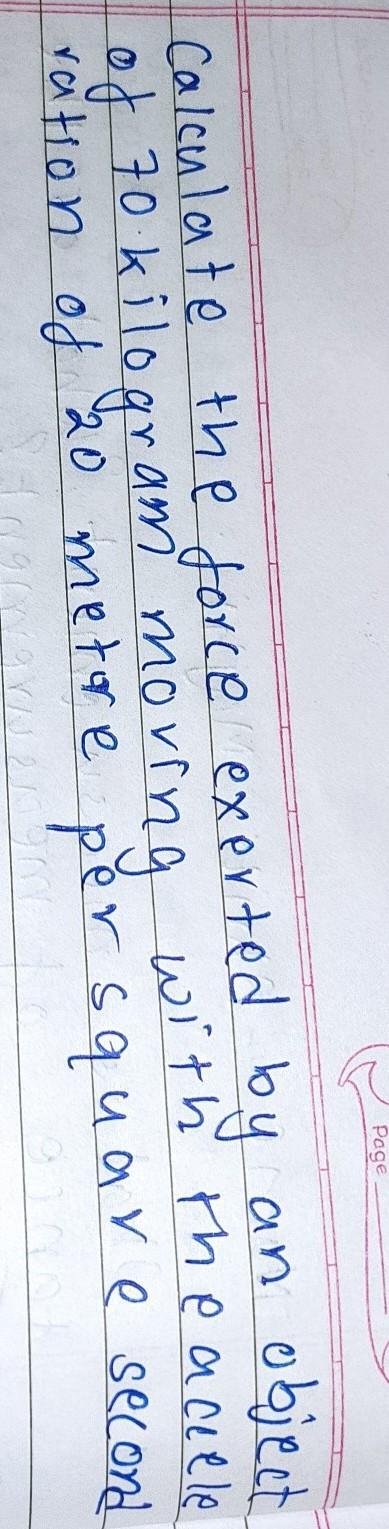 Page
Calculate the force exerted by an object
of 70 kilogram moving with the accele
ration of 20 metre per square second